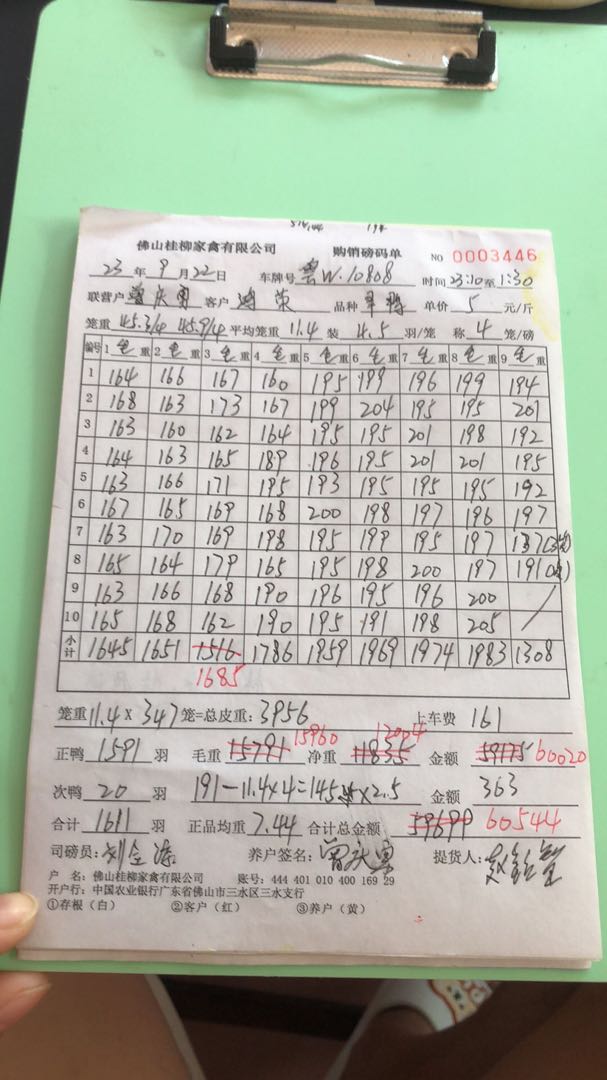 佛山桂柳家禽有限公司 购销磅码单 NO 0003446
23年9月22日 车牌号 粤W.10808 时间23:10至1:30
联营户 曾庆勇 客户 鸿荣 品种 单价 5 元/斤
笼重 45.3/4 45.9/4 平均笼重 11.4 装 4.5 羽/笼 称 4 笼/磅
编号 1 毛重 2 毛重 3 毛重 4 毛重 5 毛重 6 毛重 7 毛重 8 毛重 9 毛重
1 164 166 167 160 195 199 196 199 194
2 168 163 173 167 199 204 195 195 201
3 163 160 162 164 195 195 201 198 192
4 164 163 165 189 196 195 201 201 195
5 163 166 171 195 193 195 195 195 192
6 167 165 169 168 200 198 197 196 197
7 163 170 169 198 195 199 195 197 137
8 165 164 179 165 195 198 200 197 191
9 163 166 168 190 196 195 196 200
10 165 168 162 190 195 191 198 205
小计 1645 1651 1516 1786 1959 1969 1974 1983 1308
1685
笼重 11.4 X 347 笼=总皮重: 3956 上车费 161
15960 12004
正鸭 1591 羽 毛重 15791 净重 11835 金额 59175 60020
次鸭 20 羽 191-11.4×4=145 ×2.5 金额 363
合计 1611 羽 正品均重 7.44 合计总金额 59699 60544
司磅员: 养户签名: 曾庆勇 提货人:
户 名: 佛山桂柳家禽有限公司 账号: 444 401 010 400 169 29
开户行: 中国农业银行广东省佛山市三水区三水支行
①存根（白） ②客户（红） ③养户（黄）